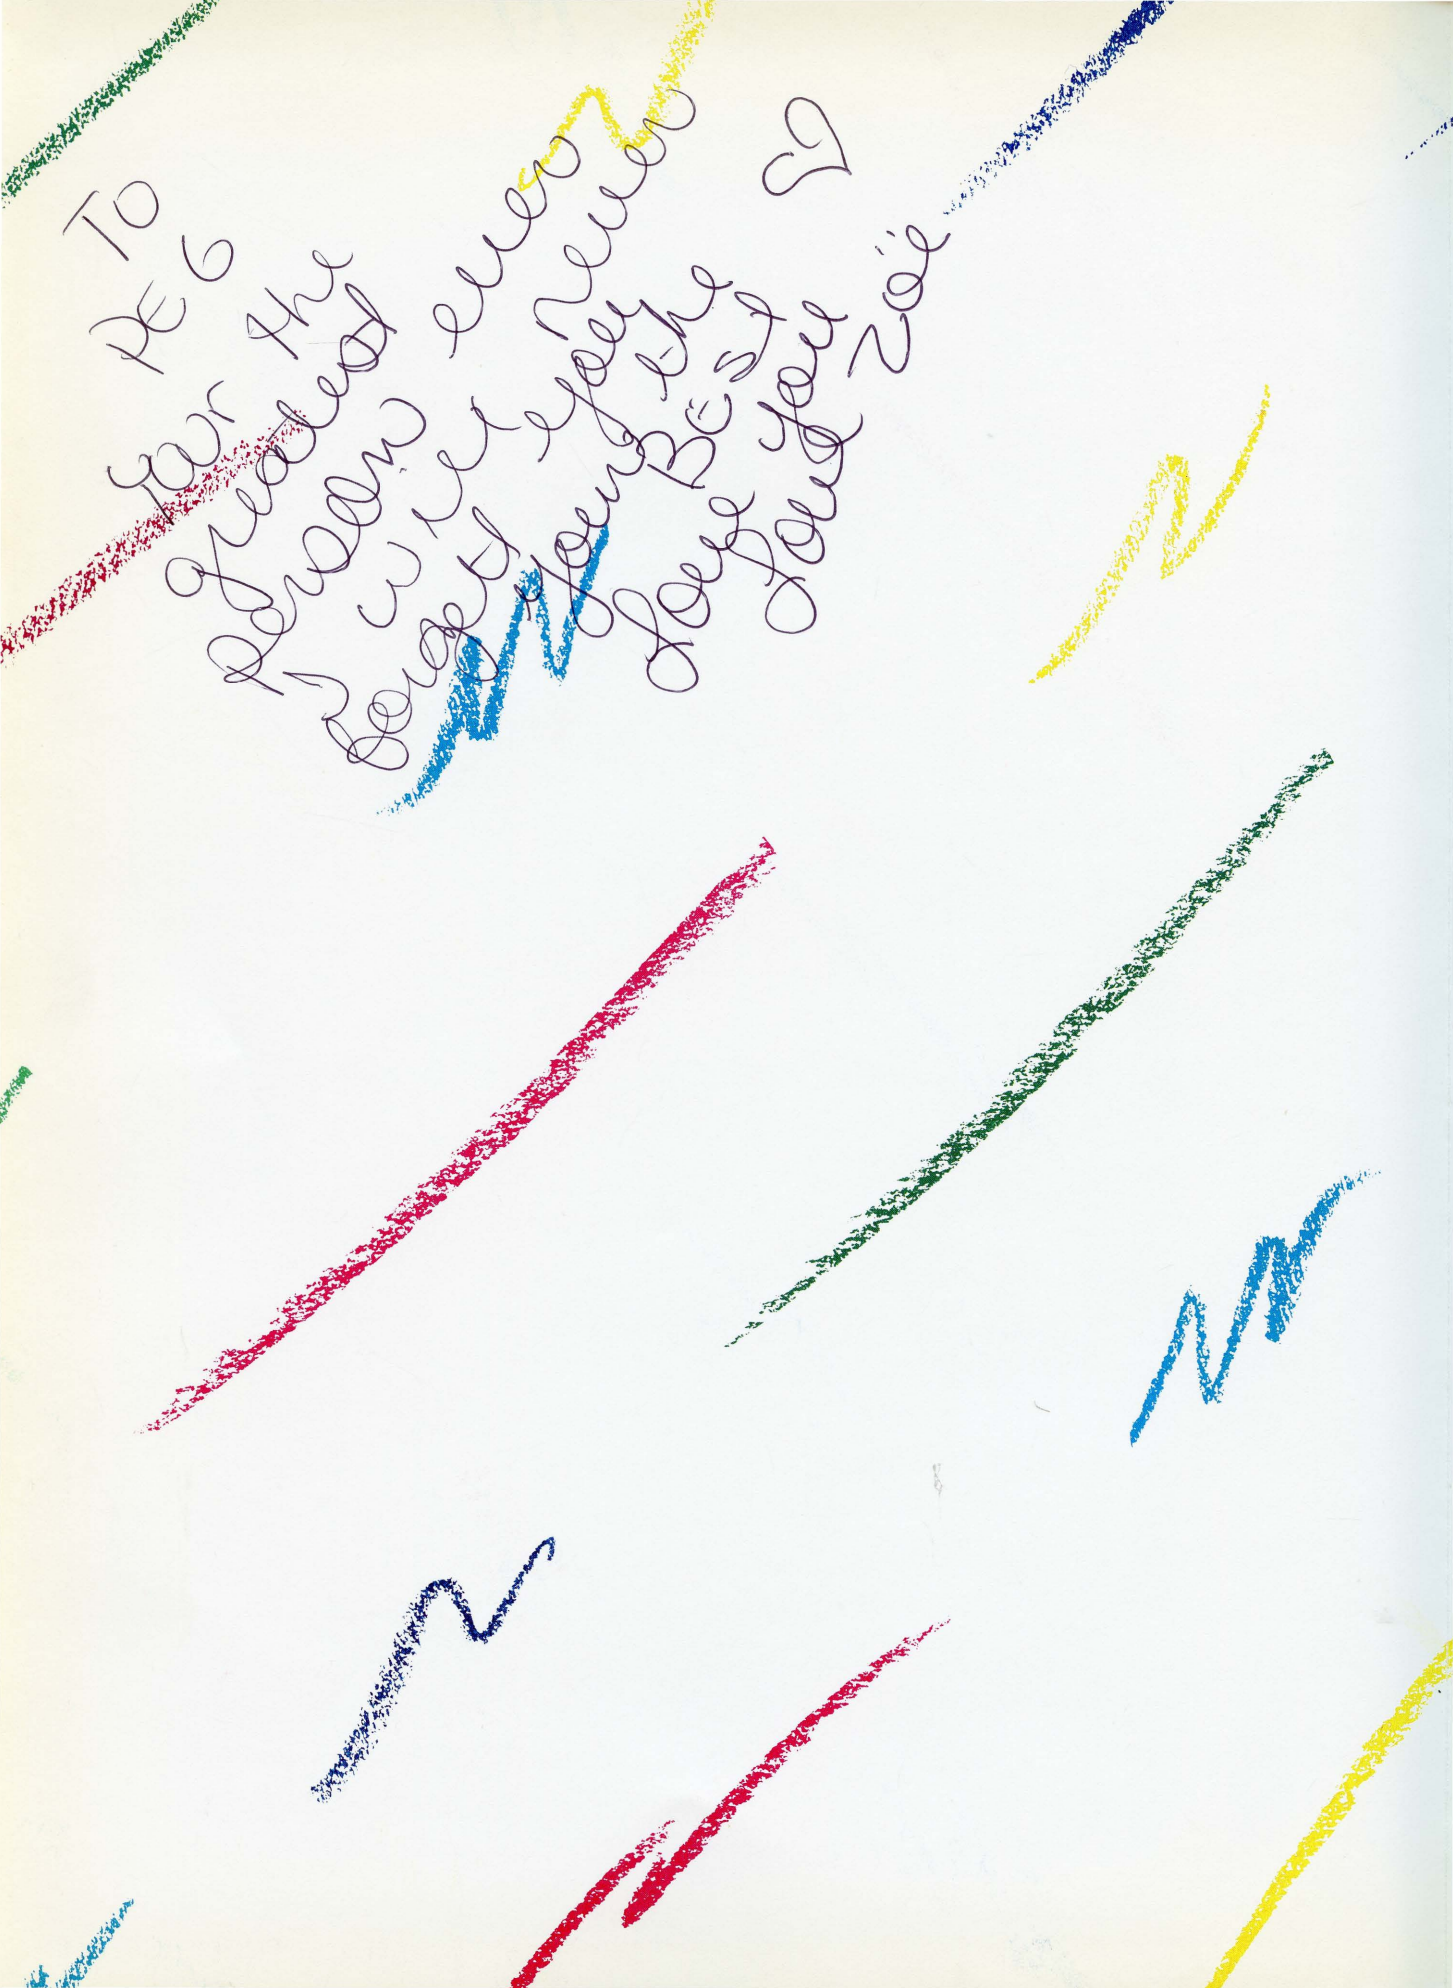 To
PEG
Your the
greatest
person ever
I will never
forget you
your the
BEST
Love
Love you
Zoë